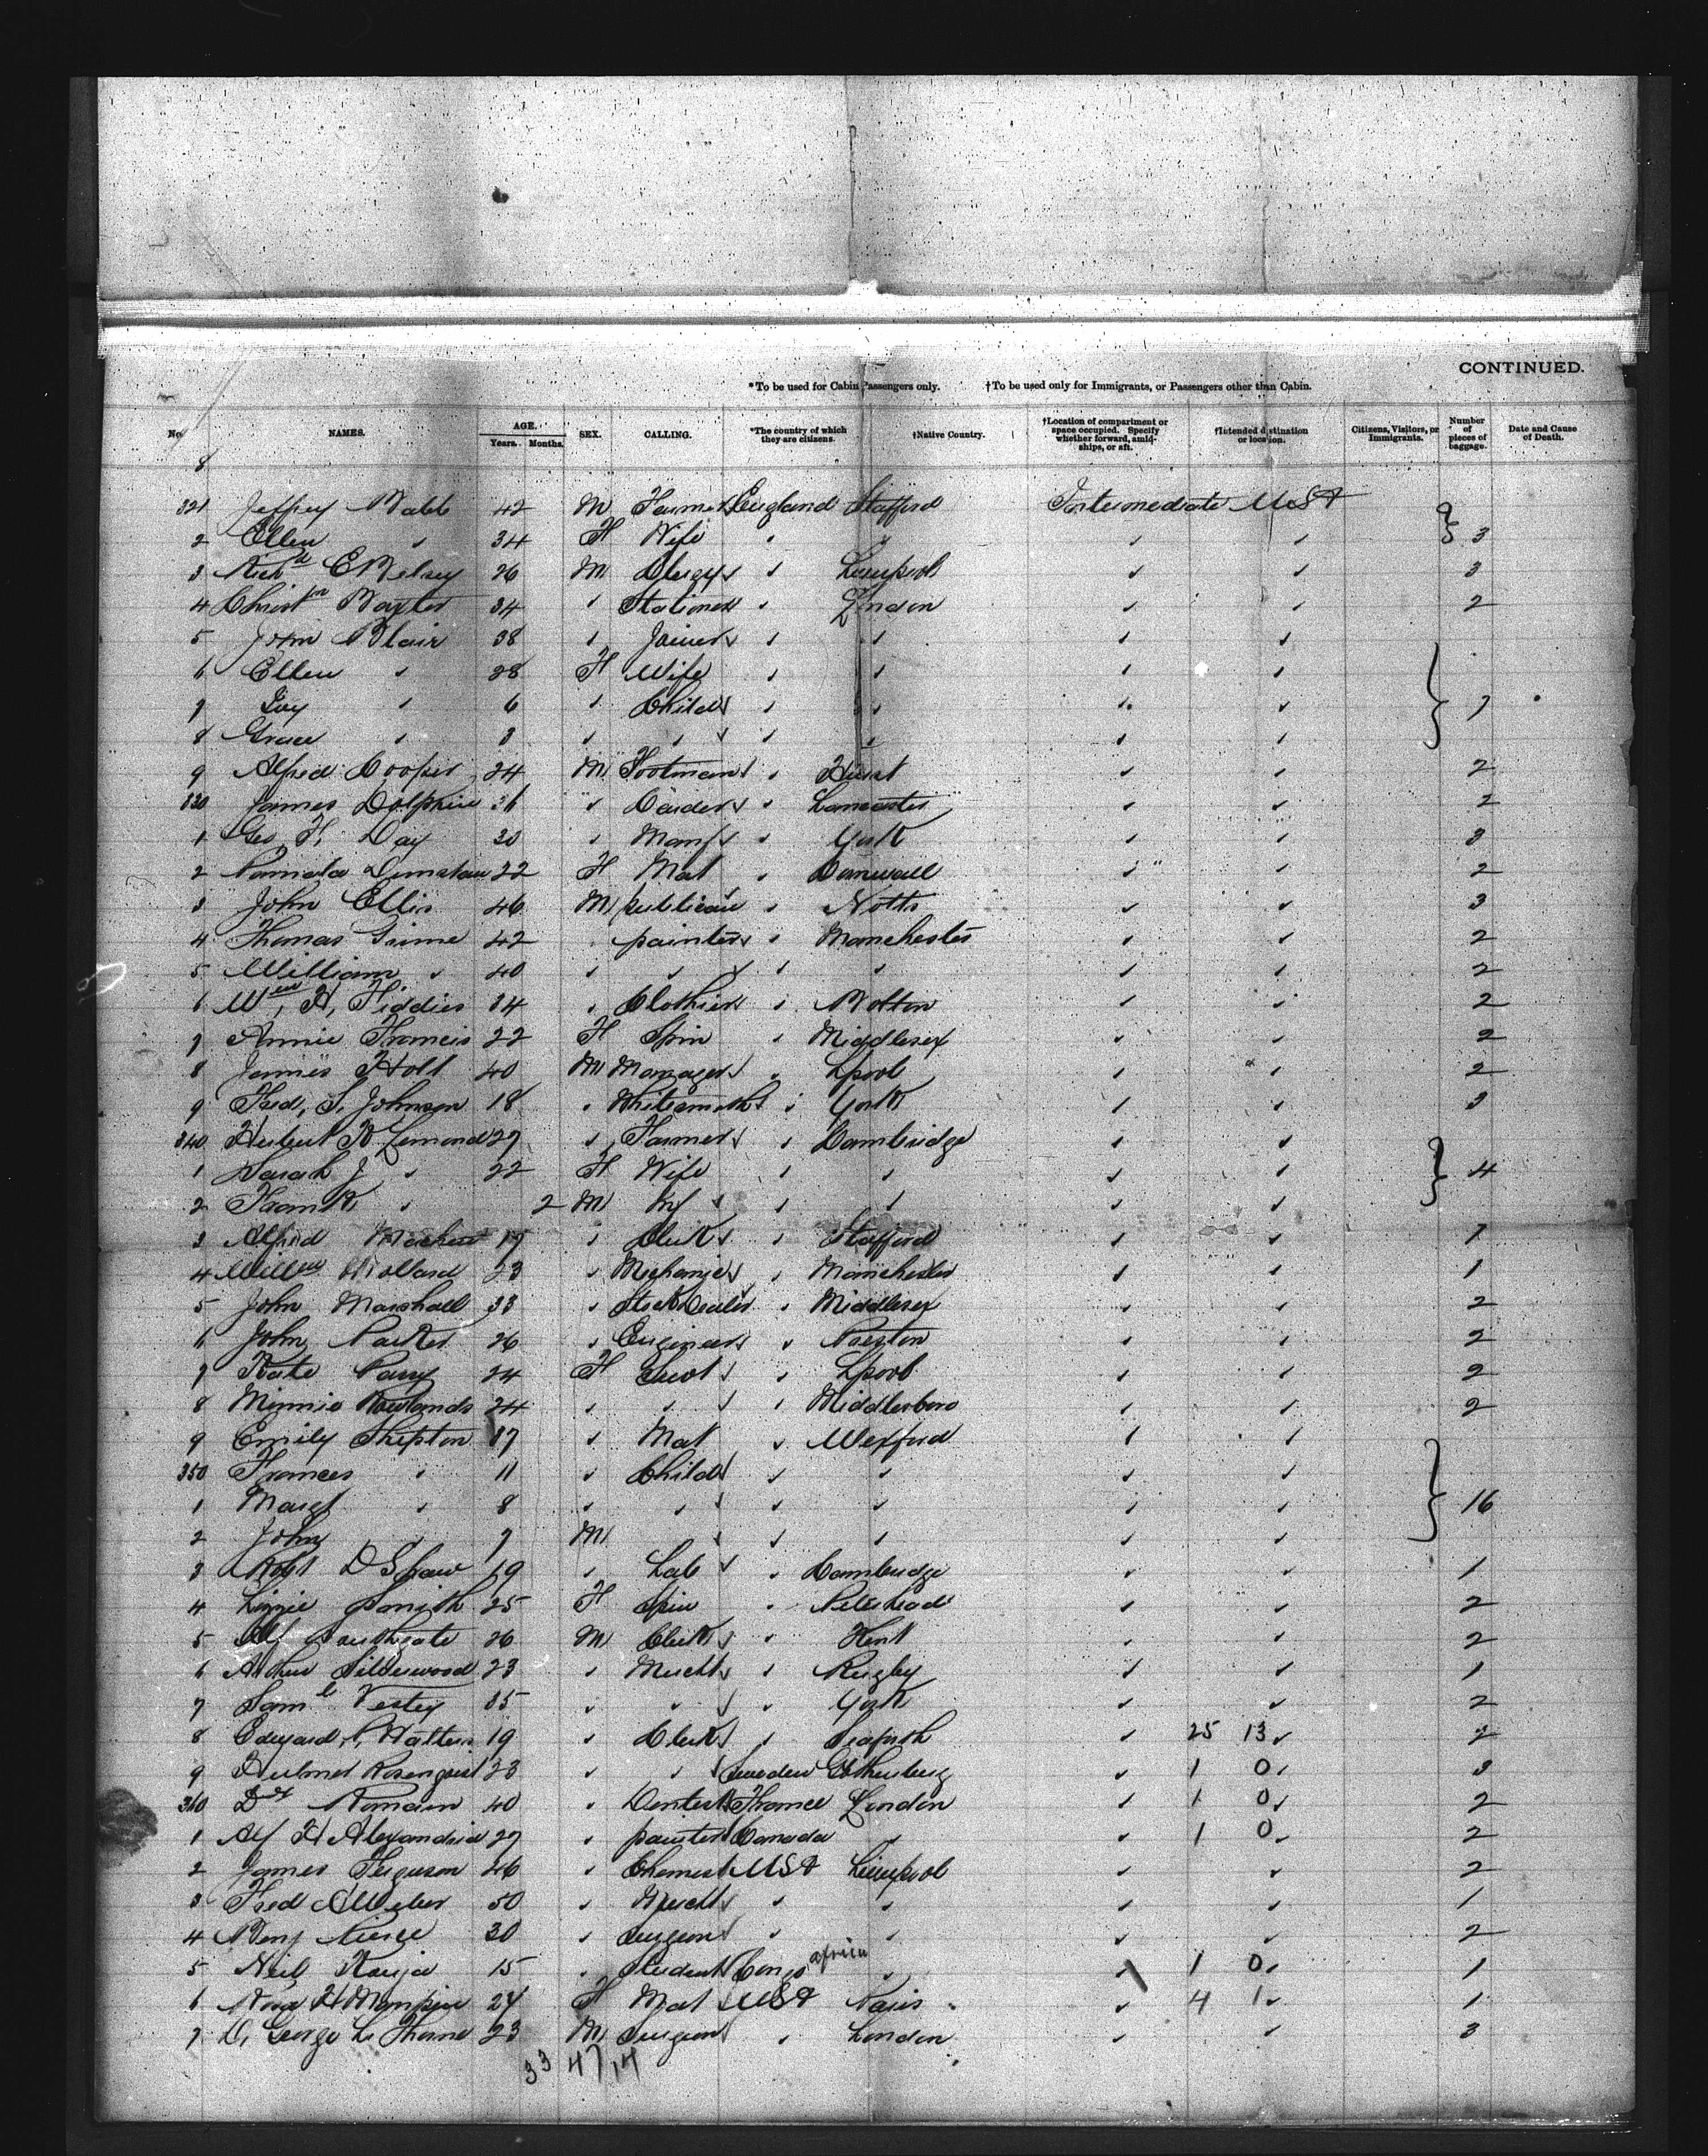 CONTINUED.
*To be used for Cabin Passengers only. †To be used only for Immigrants, or Passengers other than Cabin.
No. NAMES. AGE. Years. Months. SEX. CALLING. *The country of which they are citizens. †Native Country. †Location of compartment or space occupied. Specify whether forward, amidships, or aft. †Intended destination or location. Citizens, Visitors, or Immigrants. Number of pieces of baggage. Date and Cause of Death.
8
321 Jeffrey Babb 42 M Farmer England Stafford Intermediate USA
2 Ellen " 34 F Wife " " " " 3
3 Richd 26 M " Liverpool " " 3
4 Baxter 34 " Stationer " London " " 2
5 John Blair 38 " Joiner " " " "
6 Ellen " 28 F Wife " " " "
7 " 6 " Child " " " " 7
8 Grace " 3 " " " " " "
9 Alfred Cooper 24 M Footman " " " 2
330 James Dolphin 36 " Carder " Lancaster " " 2
1 Geo H. Day 30 " Manf " York " " 3
2 Dunstan 22 F Mat " Cornwall " " 2
3 John Ellis 46 M publican " Notts " " 3
4 Thomas Grime 42 " painter " Manchester " " 2
5 William " 40 " " " " " " 2
6 Wm H. Fiddies 34 " Clothier " Bolton " " 2
7 Annie Francis 22 F Spin " Middlesex " " 2
8 James Holt 40 M Manager " Lpool " " 2
9 Fred. S. Johnson 18 " Whitesmith " York " " 3
340 Herbert R Lemond 27 " Farmer " Cambridge " "
1 Sarah J " 22 F Wife " " " " 4
2 Frank " 2 M Inf " " " "
3 Alfred 17 " Clerk " Stafford " " 1
4 Willm Mollard 23 " Mechanic " Manchester " " 1
5 John Marshall 33 " Stock Dealer " Middlesex " " 2
6 John Parker 26 " Engineer " Preston " " 2
7 Kate Parry 24 F Servt " Lpool " " 2
8 Minnie Rowlands 24 " " " Middlesboro " " 2
9 Emily Shipton 37 " Mat " Wexford " "
350 Frances " 11 " Child " " " "
1 Margt " 8 " " " " " " 16
2 John " 7 M " " " "
3 Robt D Shaw 19 " Lab " Cambridge " " 1
4 Lizzie Smith 25 F Spin " Peterhead " " 2
5 Alf Southgate 26 M Clerk " Kent " " 2
6 Arthur Silderwood 23 " Mercht " Rugby " " 1
7 Saml Vestey 35 " " " York " " 2
8 Edward P. 19 " Clerk " Seaforth " 25 13 " 2
9 Rosenqvist 23 " " Sweden Gothenberg " 1 0 " 3
360 Dr Romain 40 " Dentist France London " 1 0 " 2
1 Alf H Alexandria 27 " painter Canada " " 1 0 " 2
2 James Ferguson 46 " Chemist USA Liverpool " " 2
3 Fred A Weber 50 " Mercht " " " " 1
4 Benj Pierce 30 " Surgeon " " " " 2
5 15 " Student Congo africa " " 1 0 " 1
6 24 F Mat USA Paris " 4 1 " 1
7 D. George L. Thorne 23 M Surgeon " London " " 3
33 47 14